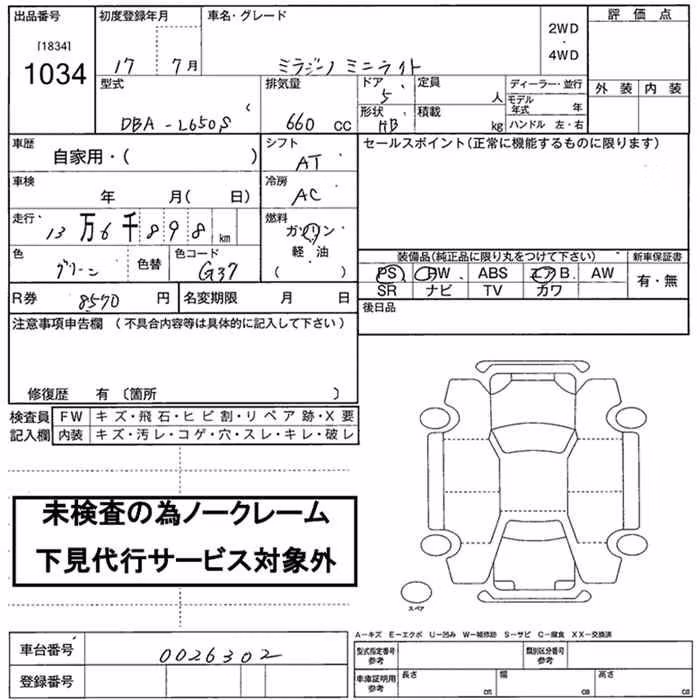 出品番号 初度登録年月 車名・グレード 評価点
[1834] 2WD
1034 17 7月 ミラジーノ ミニライト ・ 4WD
型式 排気量 ドア 5 定員 人 ディーラー・並行 外装 内装
モデル年式 年
DBA-L650S 660 CC 形状 HB 積載 kg ハンドル 左・右
車歴 シフト セールスポイント(正常に機能するものに限ります)
自家用・( ) AT
車検 冷房
年 月( 日) AC
走行 13万6千898km 燃料
ガソリン
色 色替 色コード 軽油 装備品(純正品に限り丸をつけて下さい) 新車保証書
グリーン G37 ( ) PS PW ABS エアB AW 有・無
SR ナビ TV カワ
R券 8570 円 名変期限 月 日 後日品
注意事項申告欄 (不具合内容等は具体的に記入して下さい)
修復歴 有 〔箇所 )
検査員 FW キズ・飛石・ヒビ割・リペア跡・X要
記入欄 内装 キズ・汚レ・コゲ・穴・スレ・キレ・破レ
未検査の為ノークレーム
下見代行サービス対象外
スペア
A−キズ E−エクボ U−凹み W−補修跡 S−サビ C−腐食 XX−交換済
車台番号 0026302 型式指定番号 参考 類別区分番号 参考
登録番号 車庫証明用 参考 長さ cm 幅 cm 高さ cm